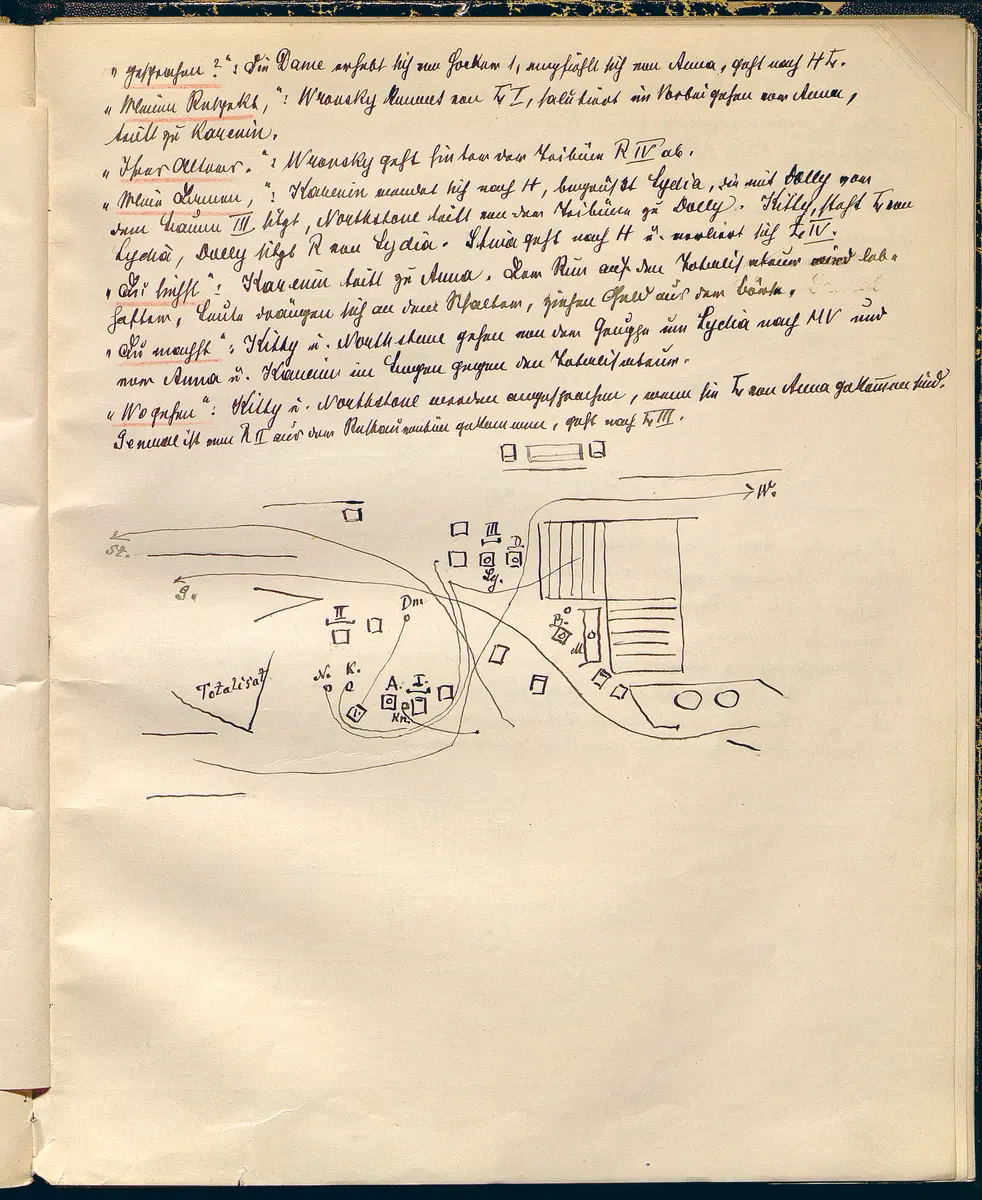 „gesprochen?“: Die Dame erhebt sich vom Hocker 1, empfiehlt sich von Anna, geht nach H L.
„Meinen Respekt,“: Wronsky kommt von L I, salutiert im Vorbeigehen vor Anna,
tritt zu Karenin.
„Ihres Alters.“: Wronsky geht hinter der Tribüne R IV ab.
„Meine Damen,“: Karenin wendet sich nach H, begrüsst Lydia, die mit Dolly vor
dem Baum III sitzt, Northstone tritt von der Tribüne zu Dolly. Kitty steht L von
Lydia, Dolly sitzt R von Lydia. Stiwa geht nach H u. verliert sich L IV.
„Du siehst“: Karenin tritt zu Anna. Der Run auf den Totalisateur wird leb-
hafter, Leute drängen sich an den Schalter, ziehen Geld aus der Börse.
„Du machst“: Kitty u. Northstone gehen von der Gruppe um Lydia nach MV und
vor Anna u. Karenin im Bogen gegen den Totalisateur.
„Wo gehen“: Kitty u. Northstone werden angesprochen, wenn sie L von Anna gekommen sind.
General ist von R II aus dem Restauration gekommen, geht nach L III.
W.
St.
III
D.
Ly.
G.
II
Dm
B.
M
Totalisat
N.
K.
A.
I.
Kn.
1.